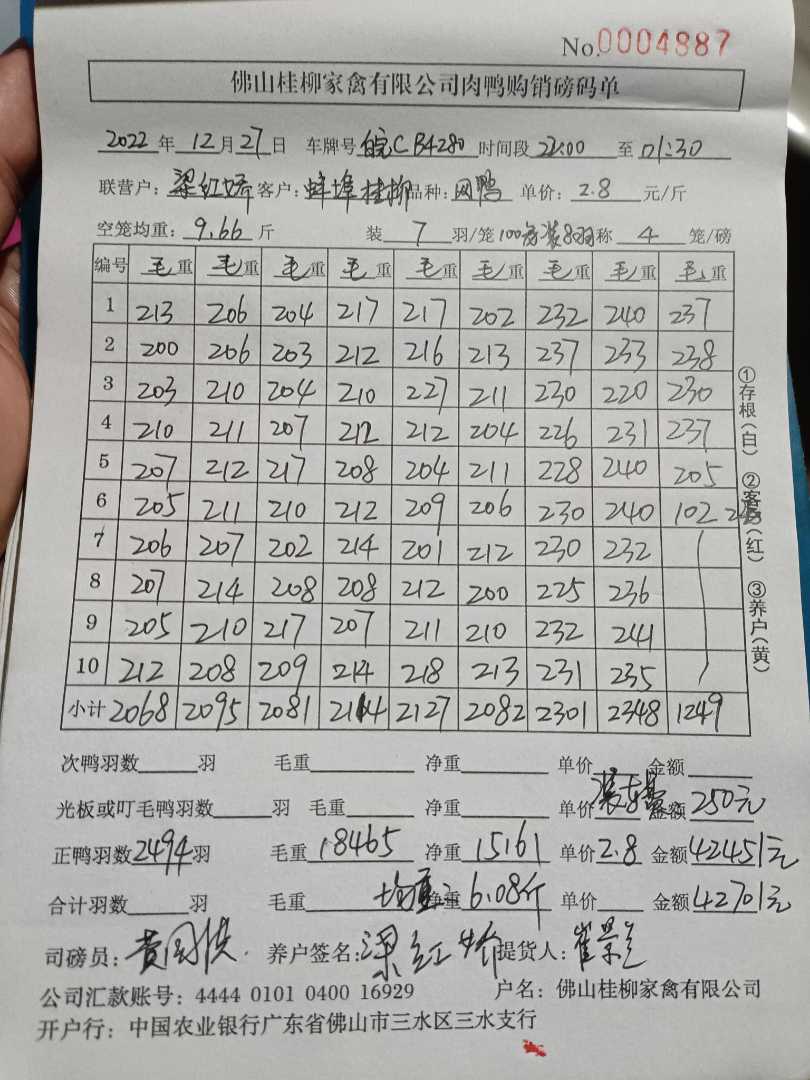 No.0004887
佛山桂柳家禽有限公司肉鸭购销磅码单
2022年12月27日 车牌号皖CB4280时间段22:00至01:30
联营户：梁红娇 客户：蚌埠桂柳 品种：网鸭 单价：2.8元/斤
空笼均重：9.66斤 装7羽/笼 100 装8羽 称4笼/磅
编号 毛重 毛重 毛重 毛重 毛重 毛重 毛重 毛重 毛重
1 213 206 204 217 217 202 232 240 237
2 200 206 203 212 216 213 237 233 238
3 203 210 204 210 227 211 230 220 230
4 210 211 207 212 212 204 226 231 237
5 207 212 217 208 204 211 228 240 205
6 205 211 210 212 209 206 230 240 102
7 206 207 202 214 201 212 230 232
8 207 214 208 208 212 200 225 236
9 205 210 217 207 211 210 232 241
10 212 208 209 214 218 213 231 235
小计 2068 2095 2081 2114 2127 2082 2301 2348 1249
①存根(白) ②客户(红) ③养户(黄)
次鸭羽数 羽 毛重 净重 单价 金额
光板或叮毛鸭羽数 羽 毛重 净重 单价 金额250元
正鸭羽数2494羽 毛重18465 净重15161 单价2.8 金额42451元
合计羽数 羽 毛重 均重：净重6.08斤 单价 金额42701元
司磅员： 养户签名：梁红娇 提货人：
公司汇款账号：4444 0101 0400 16929 户名：佛山桂柳家禽有限公司
开户行：中国农业银行广东省佛山市三水区三水支行